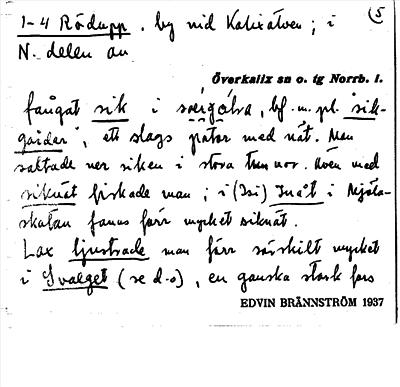 1-4 Rödupp. by vid Kalixälven; i (5
N. delen av
Överkalix sn o. tg Norrb. l.
fångat sik i , bf. m. pl. "sik-
gårder", ett slags med nät. Man
saltade ner siken i stora tunnor. Även med
siknät fiskade man; i (Isi) i
fanns förr mycket siknät.
Lax ljustrade man förr särskilt mycket
i Svalget (se d.o), en ganska stark fors
EDVIN BRÄNNSTRÖM 1937